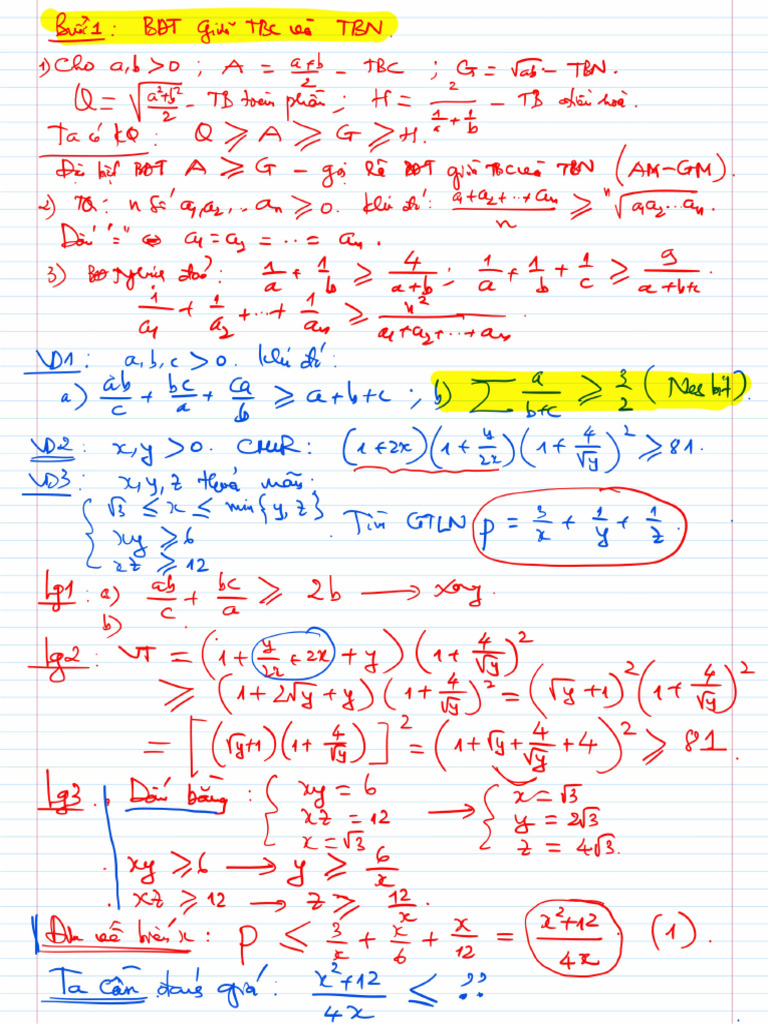 Buổi 1: BĐT giữa TBC và TBN.
1) Cho a,b > 0 ; A = \frac{a+b}{2} - TBC ; G = \sqrt{ab} - TBN.
Q = \sqrt{\frac{a^2+b^2}{2}} - TB toàn phần ; H = \frac{2}{\frac{1}{a}+\frac{1}{b}} - TB điều hoà.
Ta có KQ: Q ⩾ A ⩾ G ⩾ H.
Đặc biệt BĐT A ⩾ G - gọi là BĐT giữa TBC và TBN (AM-GM).
2) TQ: n số a_1, a_2, .. a_n ⩾ 0. Khi đó: \frac{a_1+a_2+..+a_n}{n} ⩾ \sqrt[n]{a_1a_2...a_n}.
Dấu "=" ⇔ a_1 = a_2 = .. = a_n.
3) BĐT nghịch đảo: \frac{1}{a} + \frac{1}{b} ⩾ \frac{4}{a+b} ; \frac{1}{a} + \frac{1}{b} + \frac{1}{c} ⩾ \frac{9}{a+b+c}.
\frac{1}{a_1} + \frac{1}{a_2} + ... + \frac{1}{a_n} ⩾ \frac{n^2}{a_1+a_2+..+a_n}
VD1: a,b,c > 0. Khi đó:
a) \frac{ab}{c} + \frac{bc}{a} + \frac{ca}{b} ⩾ a+b+c ; b) ∑ \frac{a}{b+c} ⩾ \frac{3}{2} (Nesbit).
VD2: x,y > 0. CMR: (1+2x)(1+\frac{y}{2x})(1+\frac{4}{\sqrt{y}})^2 ⩾ 81.
VD3: x,y,z thoả mãn:
{ \sqrt{3} ≤ x ≤ min{y,z}
xy ⩾ 6
xz ⩾ 12
. Tìm GTLN P = \frac{3}{x} + \frac{1}{y} + \frac{1}{z}.
Lg1: a) \frac{ab}{c} + \frac{bc}{a} ⩾ 2b ⟶ xong.
b)
Lg2: VT = (1 + \frac{y}{2x} + 2x + y)(1+\frac{4}{\sqrt{y}})^2
⩾ (1+2\sqrt{y}+y)(1+\frac{4}{\sqrt{y}})^2 = (\sqrt{y}+1)^2(1+\frac{4}{\sqrt{y}})^2
= [(\sqrt{y}+1)(1+\frac{4}{\sqrt{y}})]^2 = (1+\sqrt{y}+\frac{4}{\sqrt{y}}+4)^2 ⩾ 81.
Lg3. Dấu bằng: { xy = 6 ; xz = 12 ; x = \sqrt{3} ⟶ { x = \sqrt{3} ; y = 2\sqrt{3} ; z = 4\sqrt{3}.
. xy ⩾ 6 ⟶ y ⩾ \frac{6}{x}
. xz ⩾ 12 ⟶ z ⩾ \frac{12}{x}.
Đưa về biến x: P ≤ \frac{3}{x} + \frac{x}{6} + \frac{x}{12} = \frac{x^2+12}{4x}. (1).
Ta cần đánh giá: \frac{x^2+12}{4x} ≤ ??